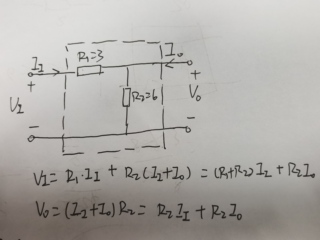 I_I R₁=3 I_o
+ +
V_I R₂=6 V_o
- -
V_I = R₁·I_I + R₂(I_I+I_o) = (R₁+R₂)I_I + R₂I_o
V_o = (I_I+I_o)R₂ = R₂I_I + R₂I_o